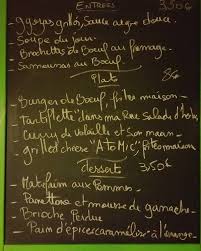 ENTREES 3,50€
- Gyozas grillés, Sauce aigre douce.
- Soupe du jour.
- Brochettes de Boeuf au fromage.
- Samoussas au Boeuf.
Plats 8€
- Burger de Boeuf, frites maison
- Tartiflette dans ma Rue Salade d'herbes
- Curry de volaille et son naan
- grilled cheese "Ato Mic", frites maison
desserts 3,50€
- Matefaim aux Pommes
- Panettone et mousse de ganache
- Brioche Perdue
- Pain d'épices caramélisé à l'orange